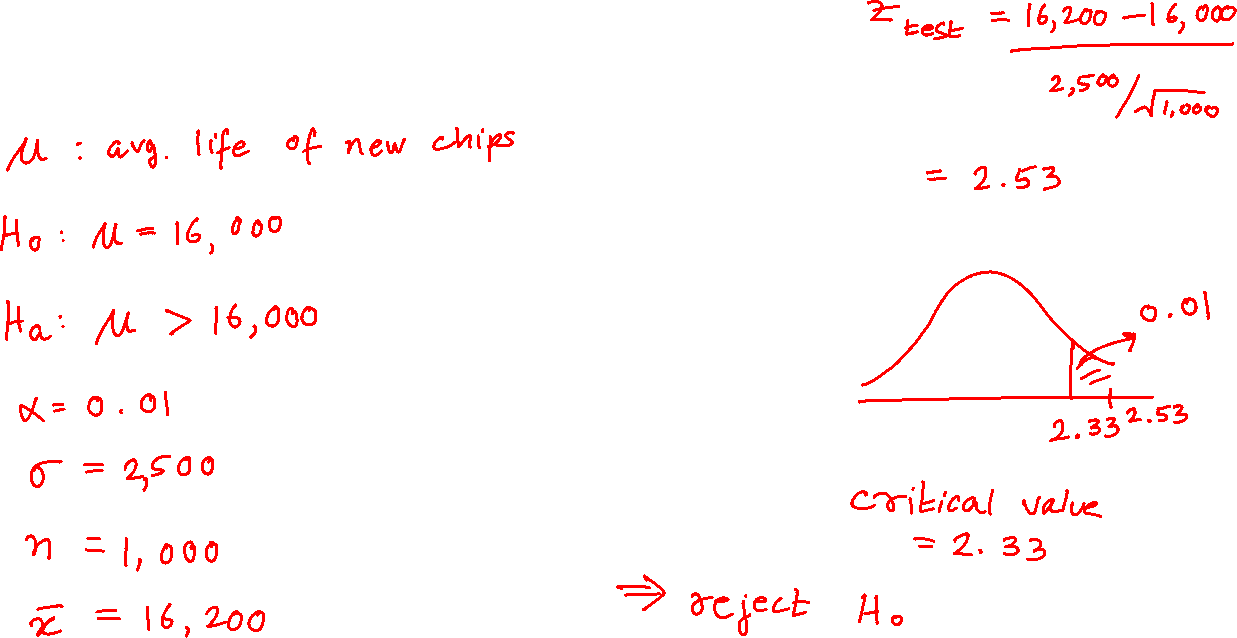 μ : avg. life of new chips
H₀ : μ = 16,000
Hₐ : μ > 16,000
α = 0.01
σ = 2,500
n = 1,000
x̄ = 16,200
Z test = 16,200 - 16,000
2,500/√1,000
= 2.53
0.01
2.33 2.53
critical value
= 2.33
⇒ reject H₀